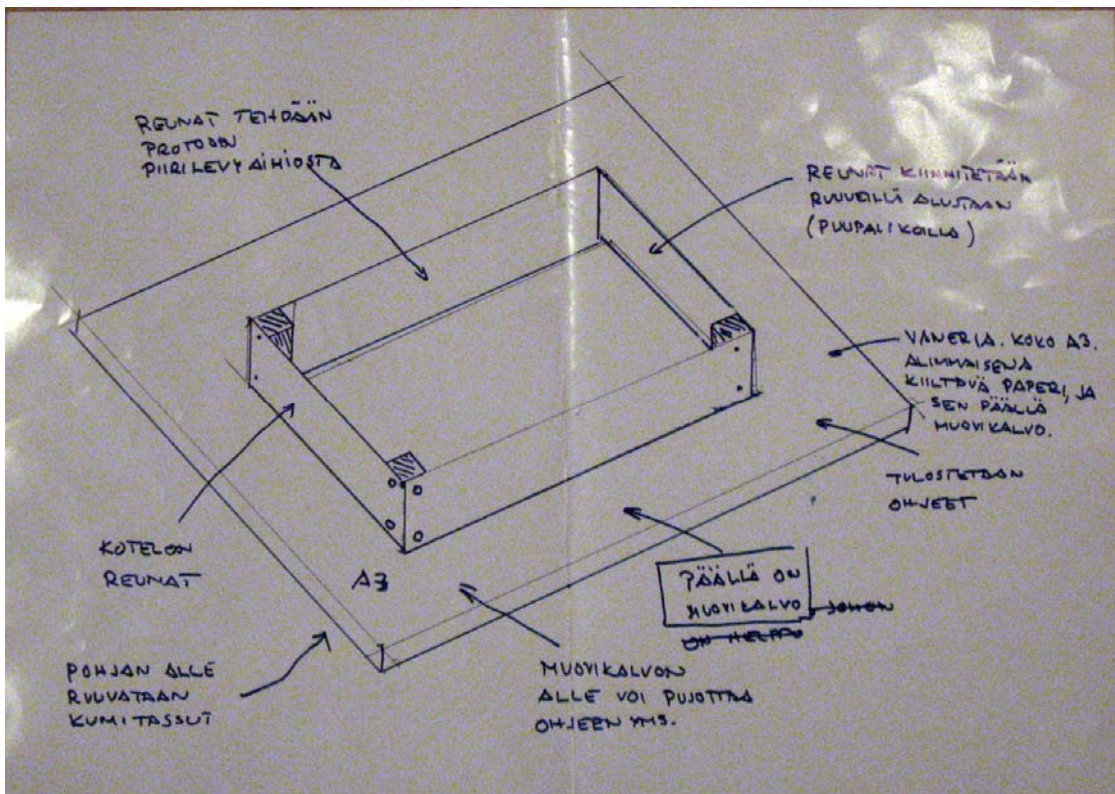 REUNAT TEHDÄÄN
PROTOON
PIIRILEVYAIHIOSTA
REUNAT KIINNITETÄÄN
RUUVEILLA ALUSTAAN
(PUUPALIKOILLA)
VANERIA. KOKO A3.
ALIMMAISENA
KIILTÄVÄ PAPERI, JA
SEN PÄÄLLÄ
MUOVIKALVO.
TULOSTETAAN
OHJEET
KOTELON
REUNAT
A3
PÄÄLLÄ ON
MUOVIKALVO JOHON
ON HELPPO
POHJAN ALLE
RUUVATAAN
KUMITASSUT
MUOVIKALVON
ALLE VOI PUJOTTAA
OHJEEN YMS.